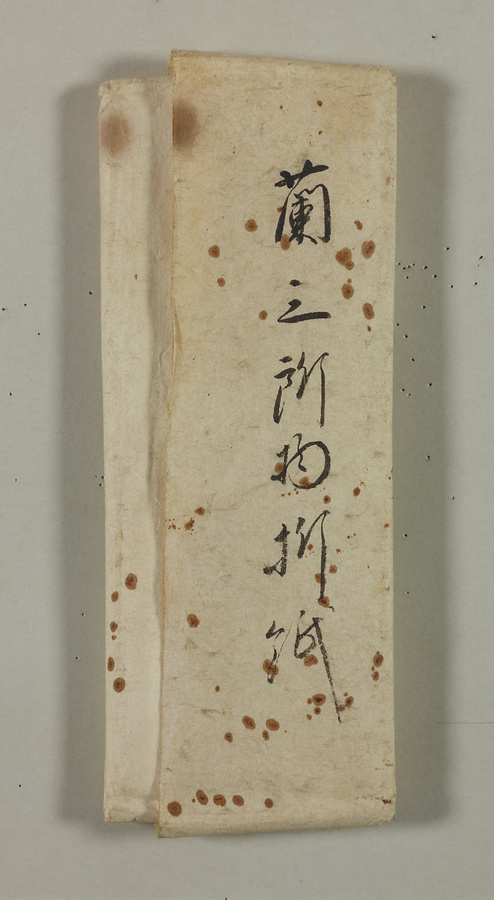 蘭三所物折紙